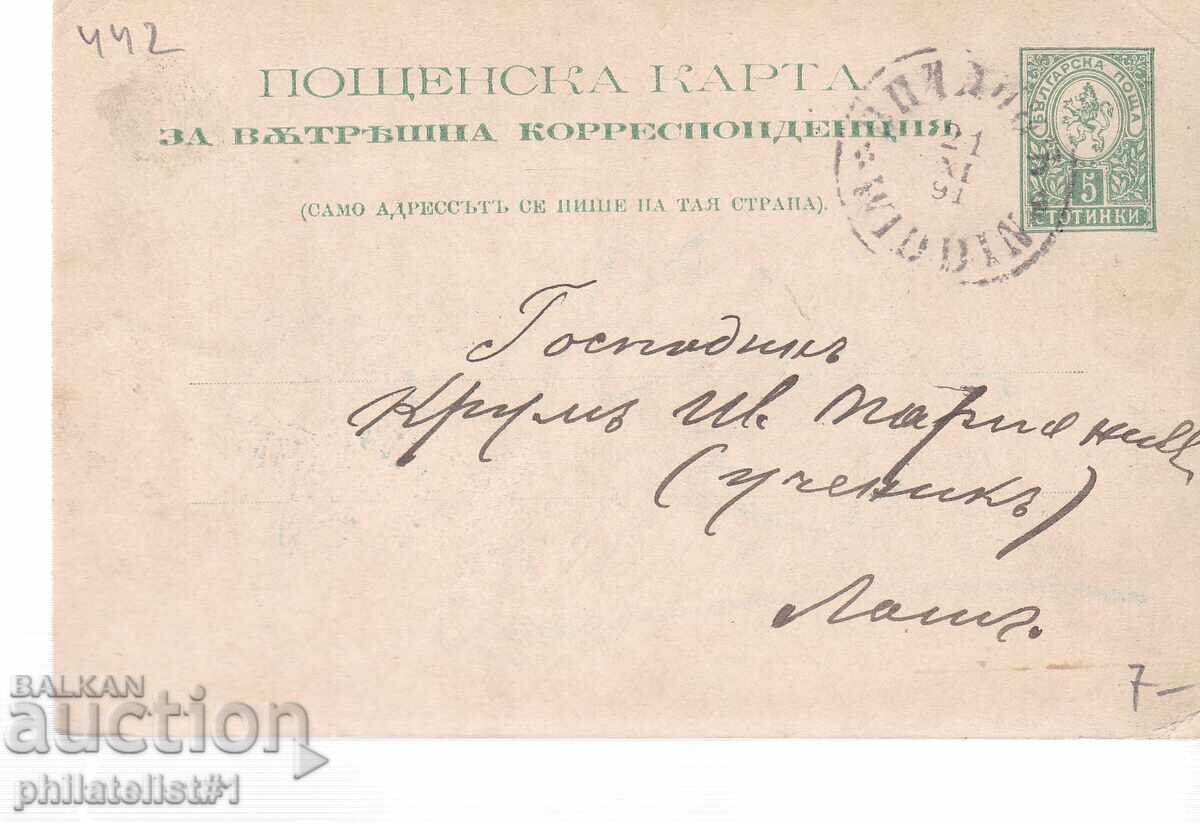 442
ПОЩЕНСКА КАРТА
ЗА ВѪТРѢШНА КОРРЕСПОНДЕНЦИЯ
(САМО АДРЕССЪТЪ СЕ ПИШЕ НА ТАЯ СТРАНА).
БЪЛГАРСКА ПОЩА
5
СТОТИНКИ
21
XI
91
WIDDIN
Господинъ
Крумъ Ив.
(ученикъ)
Ломъ.
7-
BALKAN
auction
philatelist#1